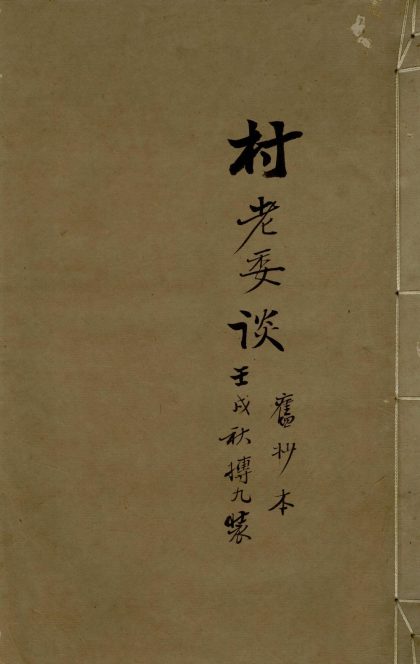 村老委谈
舊抄本
壬戌秋摶九装